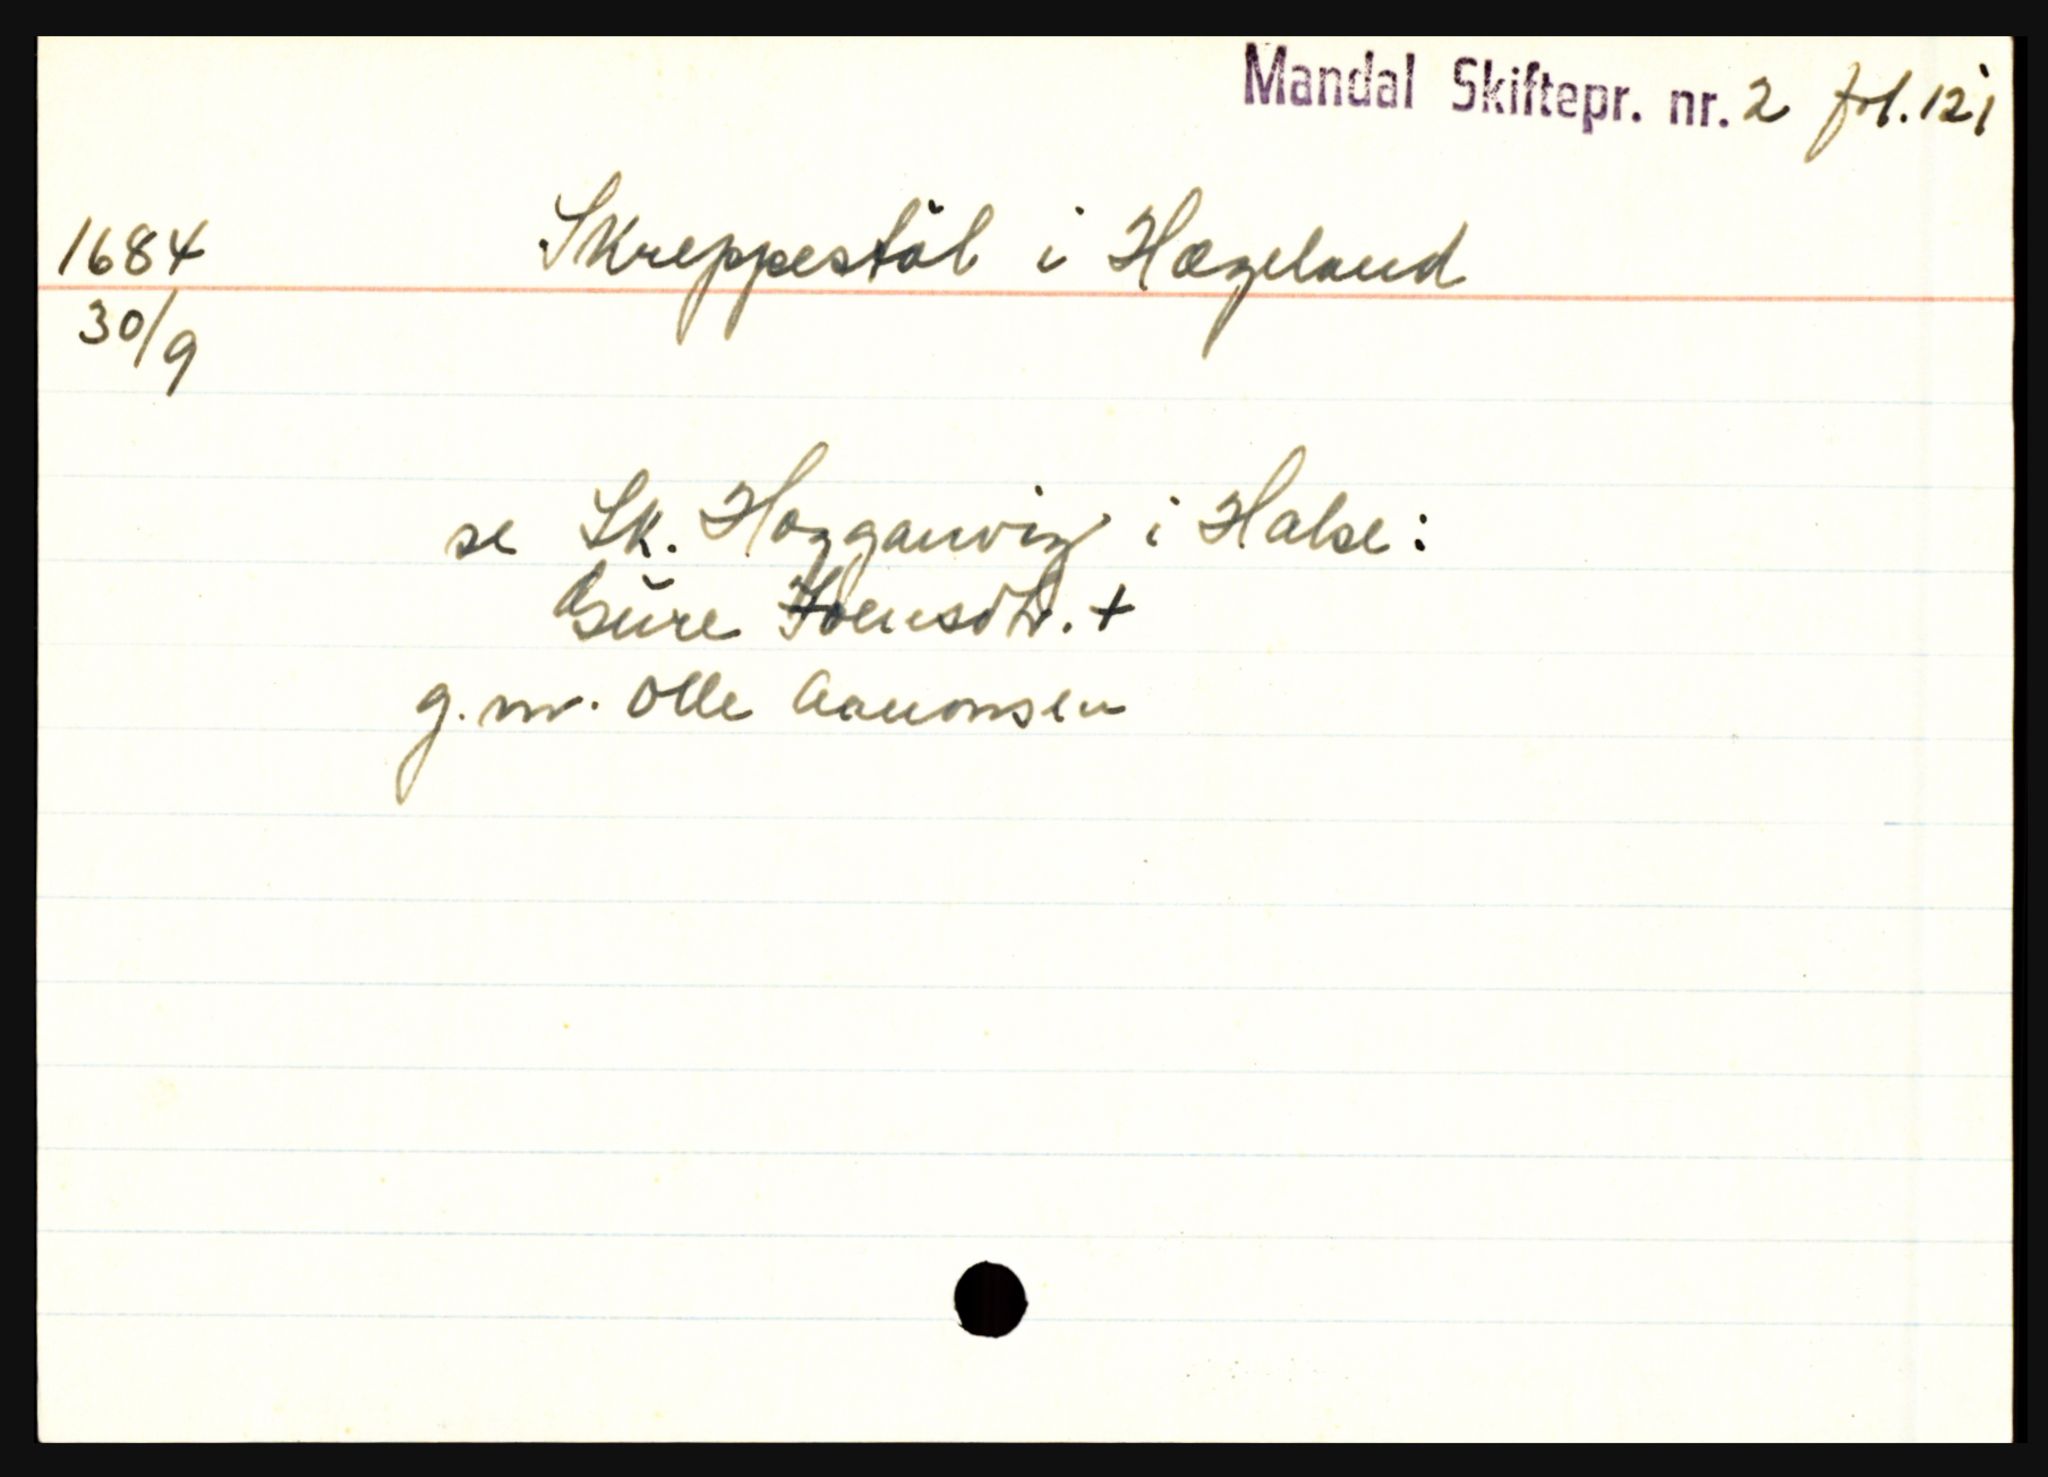 Mandal Skiftepr. nr. 2 fol. 121
1684 Skreppestöl i Hægeland
30/9
se Sk. Hogganvig i Halse:
Gure Toensdtr. +
g.m. Olle Aanonsen